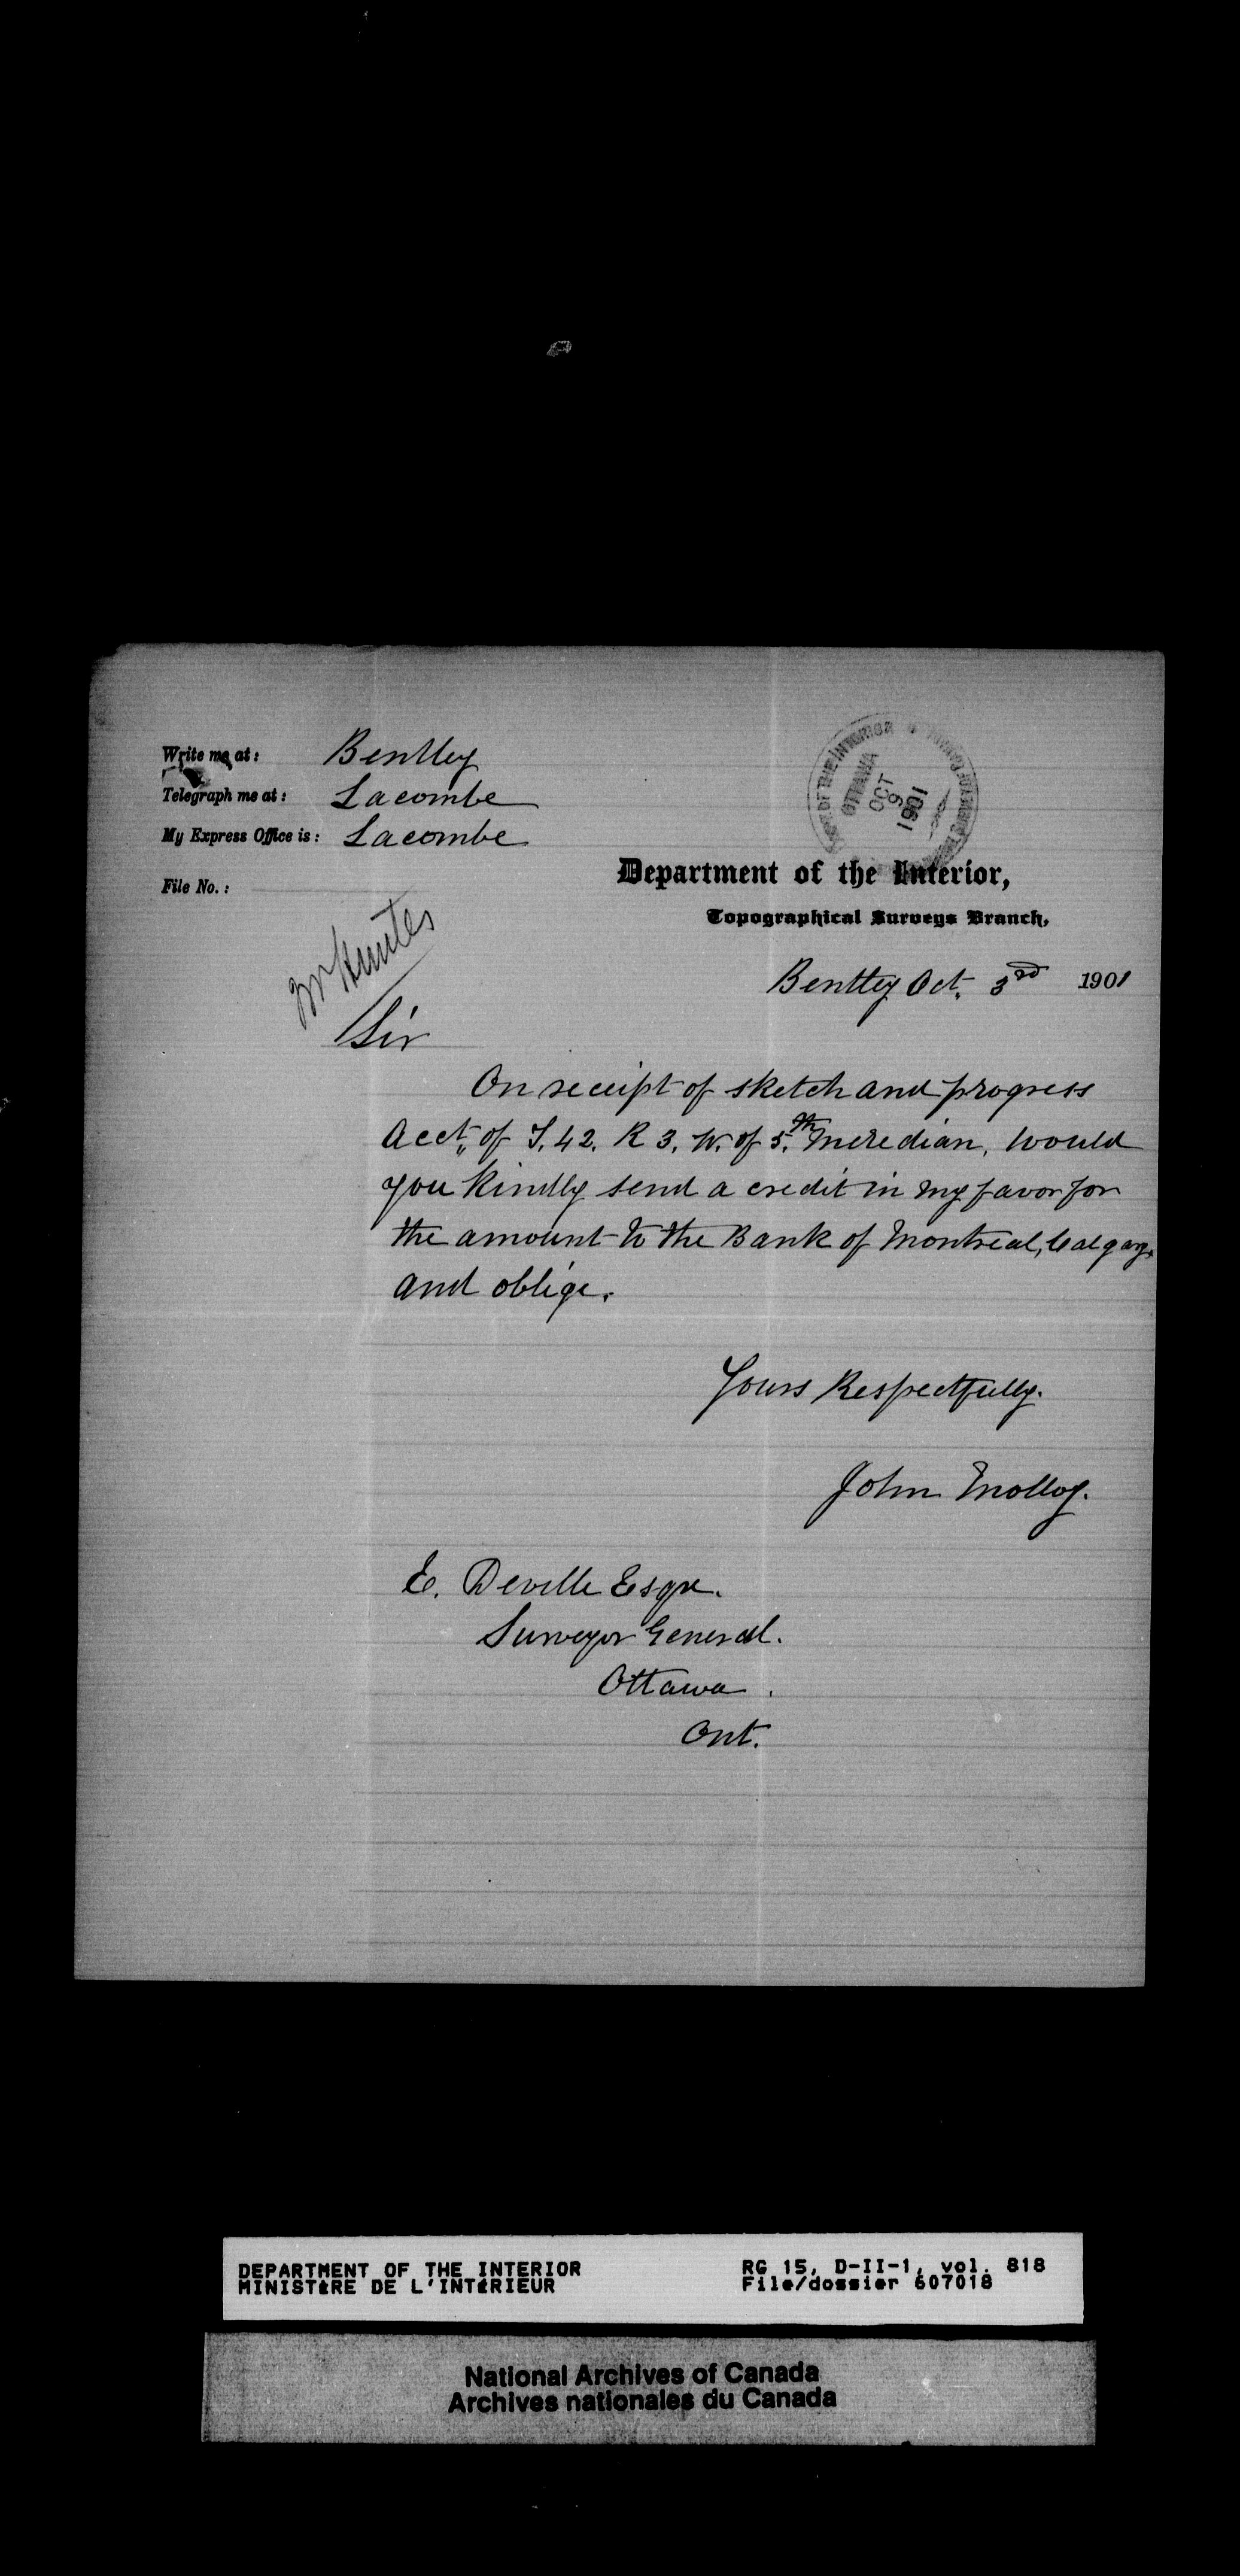 Write me at: Bentley
Telegraph me at: Lacombe
My Express Office is: Lacombe
File No.:
OTTAWA
OCT
9
1901
Department of the Interior,
Topographical Surveys Branch,
Mr Hunter
Bentley Oct. 3rd 1901
Sir
On receipt of sketch and progress
Acct. of T. 42. R 3. W. of 5th Meredian, would
you kindly send a credit in my favor for
the amount to the Bank of Montreal, Calgary.
and oblige.
Yours Respectfully.
John Molloy.
E. Deville Esqre.
Surveyor General.
Ottawa.
Ont.
DEPARTMENT OF THE INTERIOR
MINISTÈRE DE L'INTÉRIEUR
RG 15, D-II-1, vol. 818
File/dossier 607018
National Archives of Canada
Archives nationales du Canada